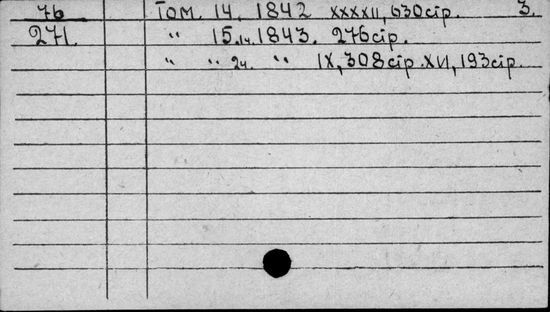 76 Том. 14. 1842 XXXXII, 630 сір. 3.
271. " 15.1ч. 1843. 276 сір.
" " 2ч. " IX, 308 сір. XVI, 193 сір.